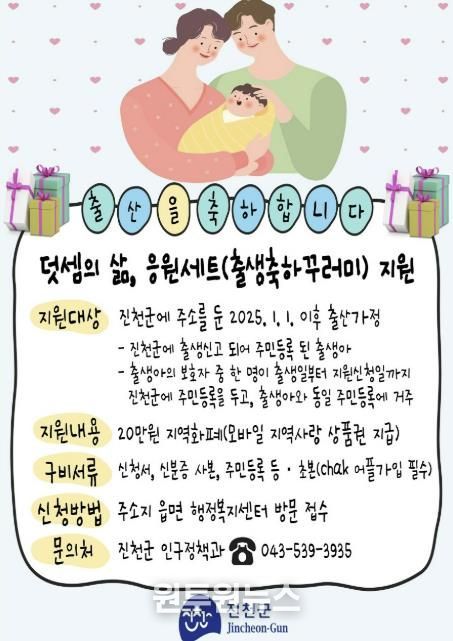 출산을축하합니다
덧셈의 삶, 응원세트(출생축하꾸러미) 지원
지원대상 진천군에 주소를 둔 2025. 1. 1. 이후 출산가정
- 진천군에 출생신고 되어 주민등록 된 출생아
- 출생아의 보호자 중 한 명이 출생일부터 지원신청일까지
진천군에 주민등록을 두고, 출생아와 동일 주민등록에 거주
지원내용 20만원 지역화폐(모바일 지역사랑 상품권 지급)
구비서류 신청서, 신분증 사본, 주민등록 등·초본(chak 어플가입 필수)
신청방법 주소지 읍면 행정복지센터 방문 접수
문의처 진천군 인구정책과 ☎ 043-539-3935
원투원뉴스
진천군
Jincheon-Gun